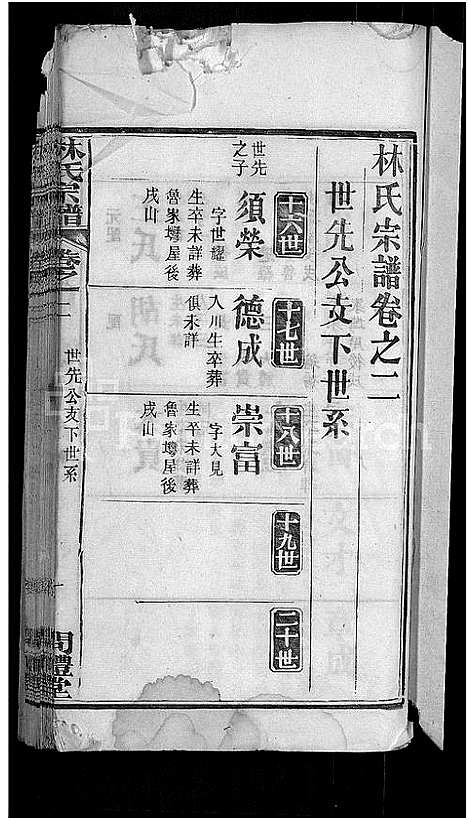 林氏宗譜卷之二
世先公支下世系
十六世
十七世
十八世
十九世
二十世
世先之子
須榮
字世縉
生卒未詳葬
魯家塆屋後
戌山
德成
入川生卒葬
俱未詳
崇富
字大見
生卒未詳葬
魯家塆屋後
戌山
林氏宗譜
卷之二
世先公支下世系
問禮堂